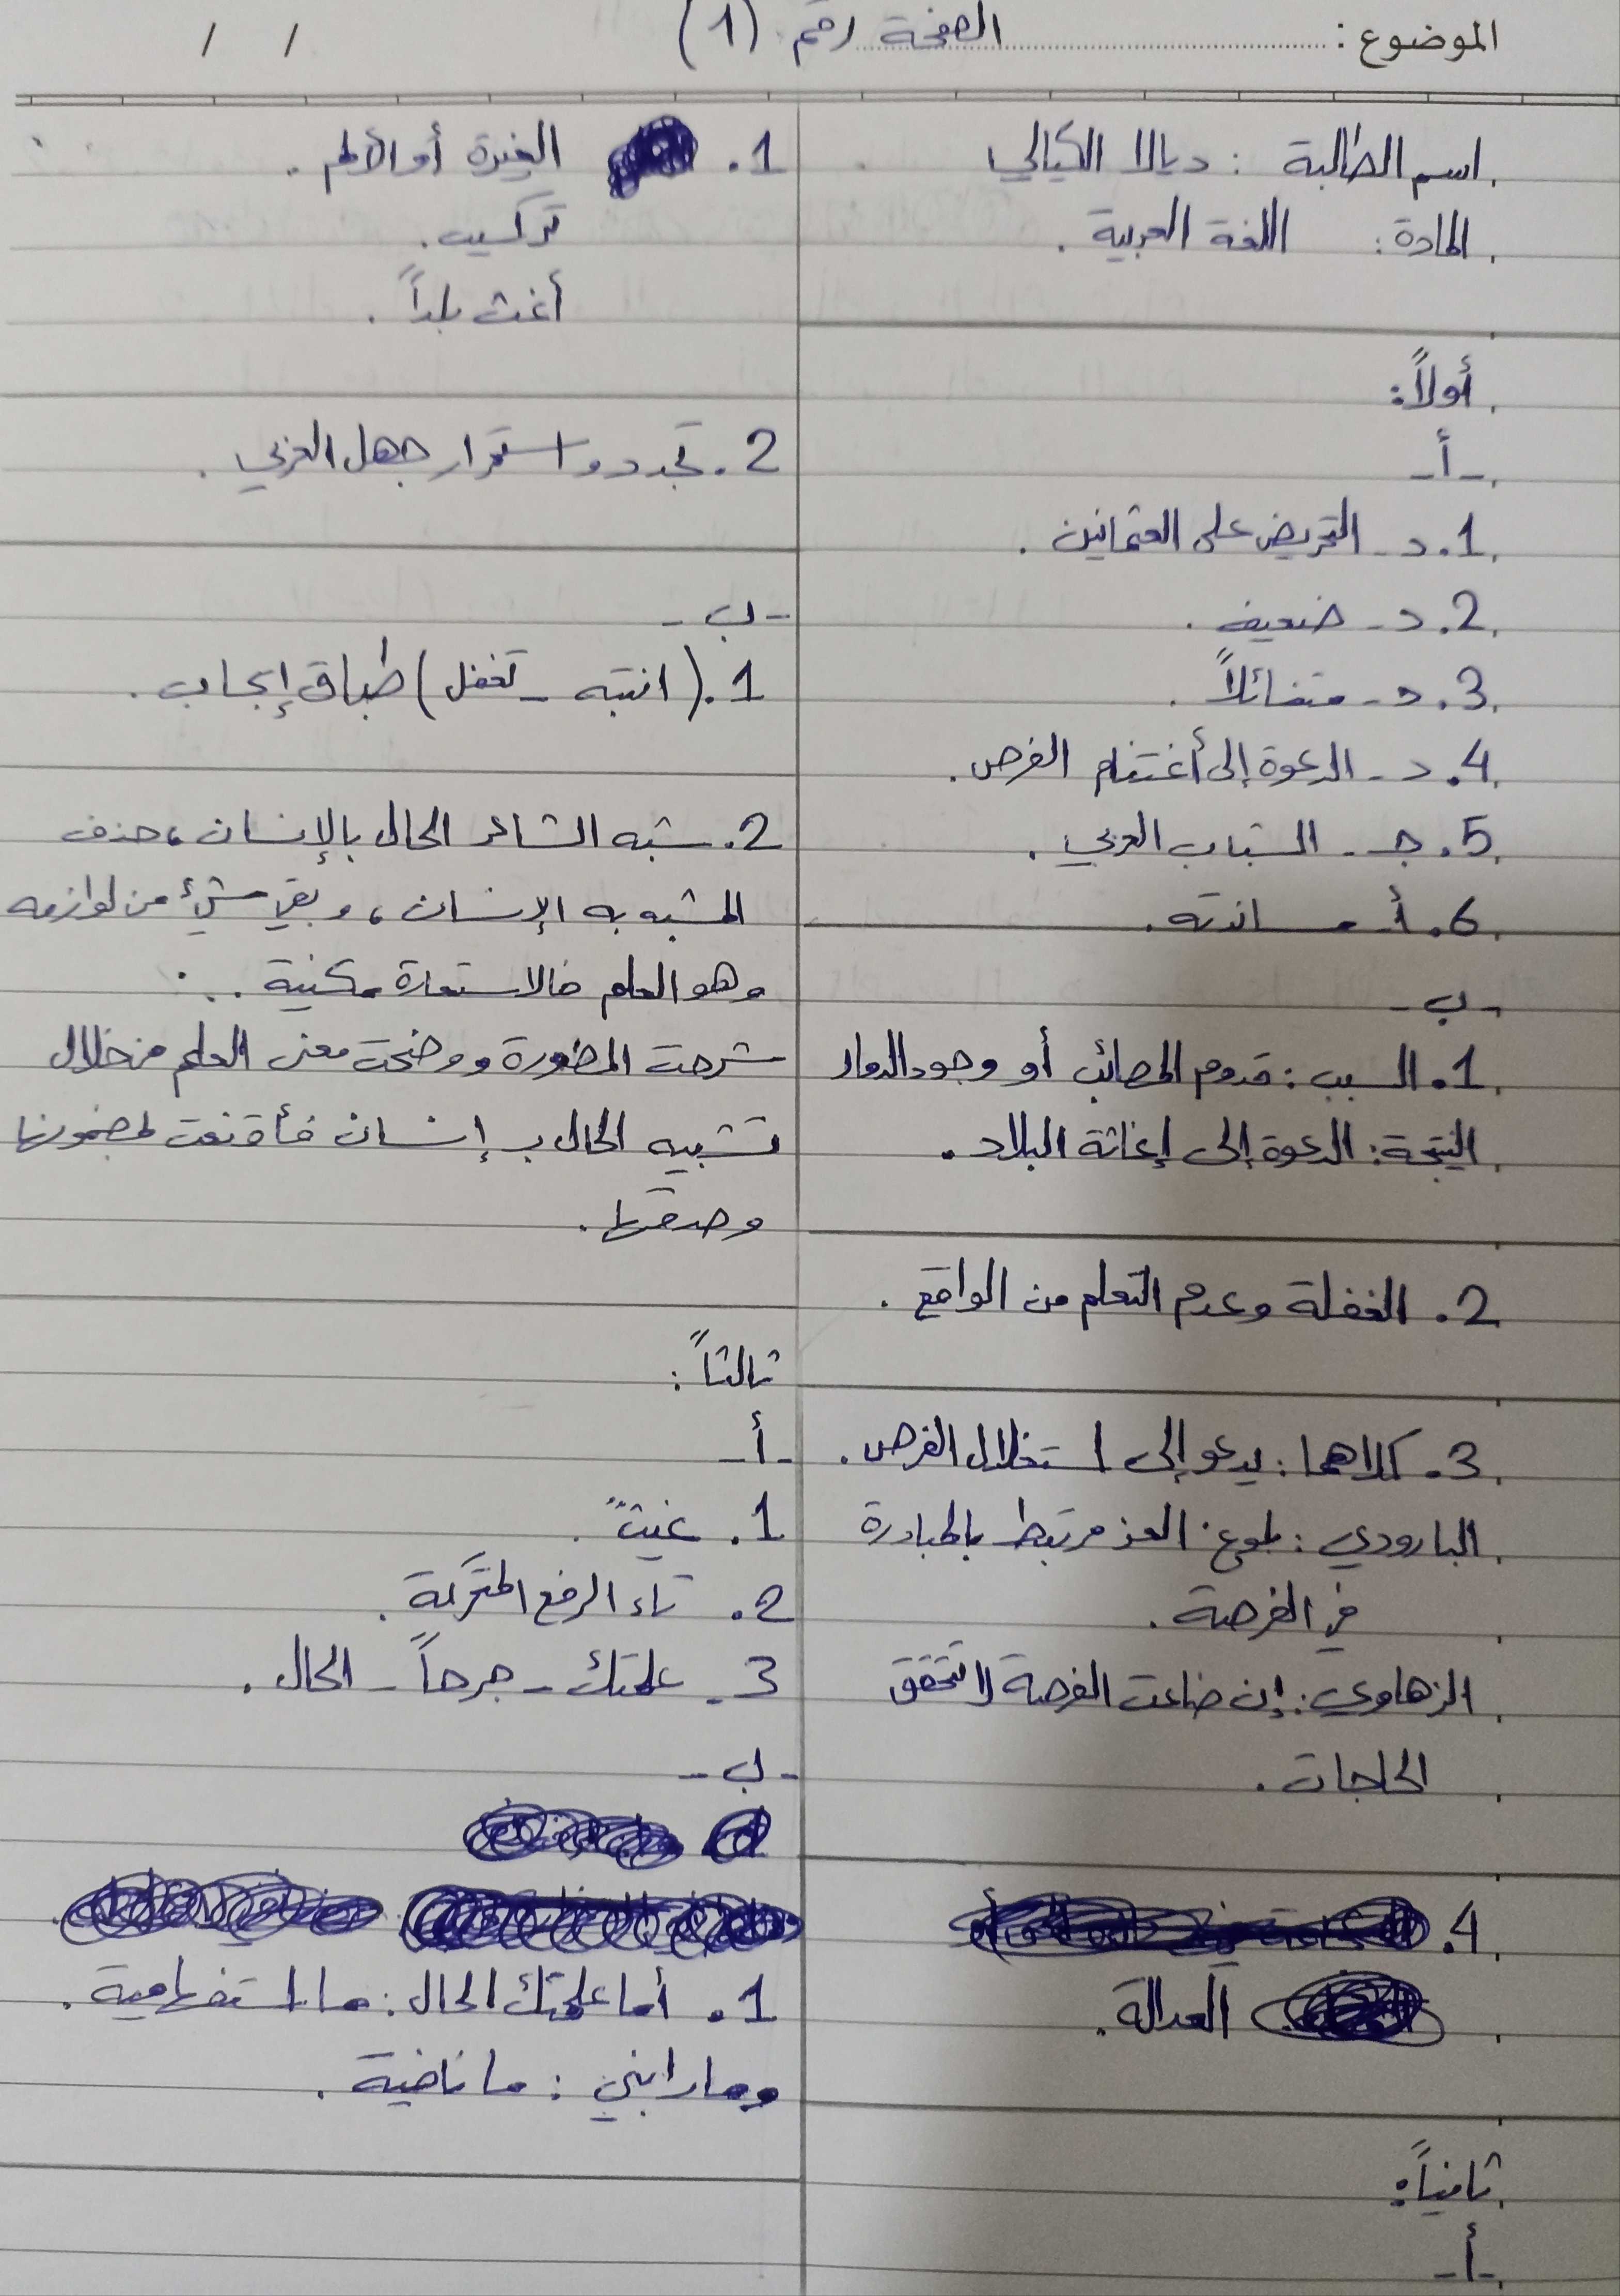 الموضوع: الصفحة رقم (1) / /
اسم الطالبة : ديالا الكيالي
المادة: اللغة العربية .
أولاً:
-أ-
1. د- التحريض على العثمانين .
2. د- ضعيف .
3. د- متفائلاً .
4. د- الدعوة إلى أغتنام الفرص.
5. جـ- الشباب العربي .
6. أ- مساندته .
-ب-
1. السبب : قدوم المصائب أو وجود الدمار
النتيجة: الدعوة إلى إغاثة البلاد .
2. الغفلة وعدم التعلم من الواقع .
3. كلاهما : يدعو إلى استغلال الفرص .
البارودي : بلوغ العز مرتبط بالمبادرة
في الفرصة .
الزهاوي: إن ضاعت الفرصة لا تتحقق
الحاجات .
4.
العدالة .
ثانياً:
-أ-
1. الغيرة أو الألم .
تركيب .
أغث بلداً .
2. تجدد و استمرار جهل العربي .
-ب-
1. (انتبه - تغفل) طباق إيجاب .
2. شبه الشاعر الحال بالإنسان ، حذف
المشبه به الإنسان ، و بقي شيئ من لوازمه
وهو العلم فالاستعارة مكنية ..
شرحت الصورة ووضحت معنى العلم من خلال
تشبيه الحال بـ إنسان فأقنعت لمضمونها
وصدقها .
ثالثاً :
-أ-
1. غيثٌ .
2. تاء الرفع المتحركة .
3- علمتك - جرحاً - الحال .
-ب-
1. أما علمتك الحال : ما استفهامية .
وما رابني : ما نافية .